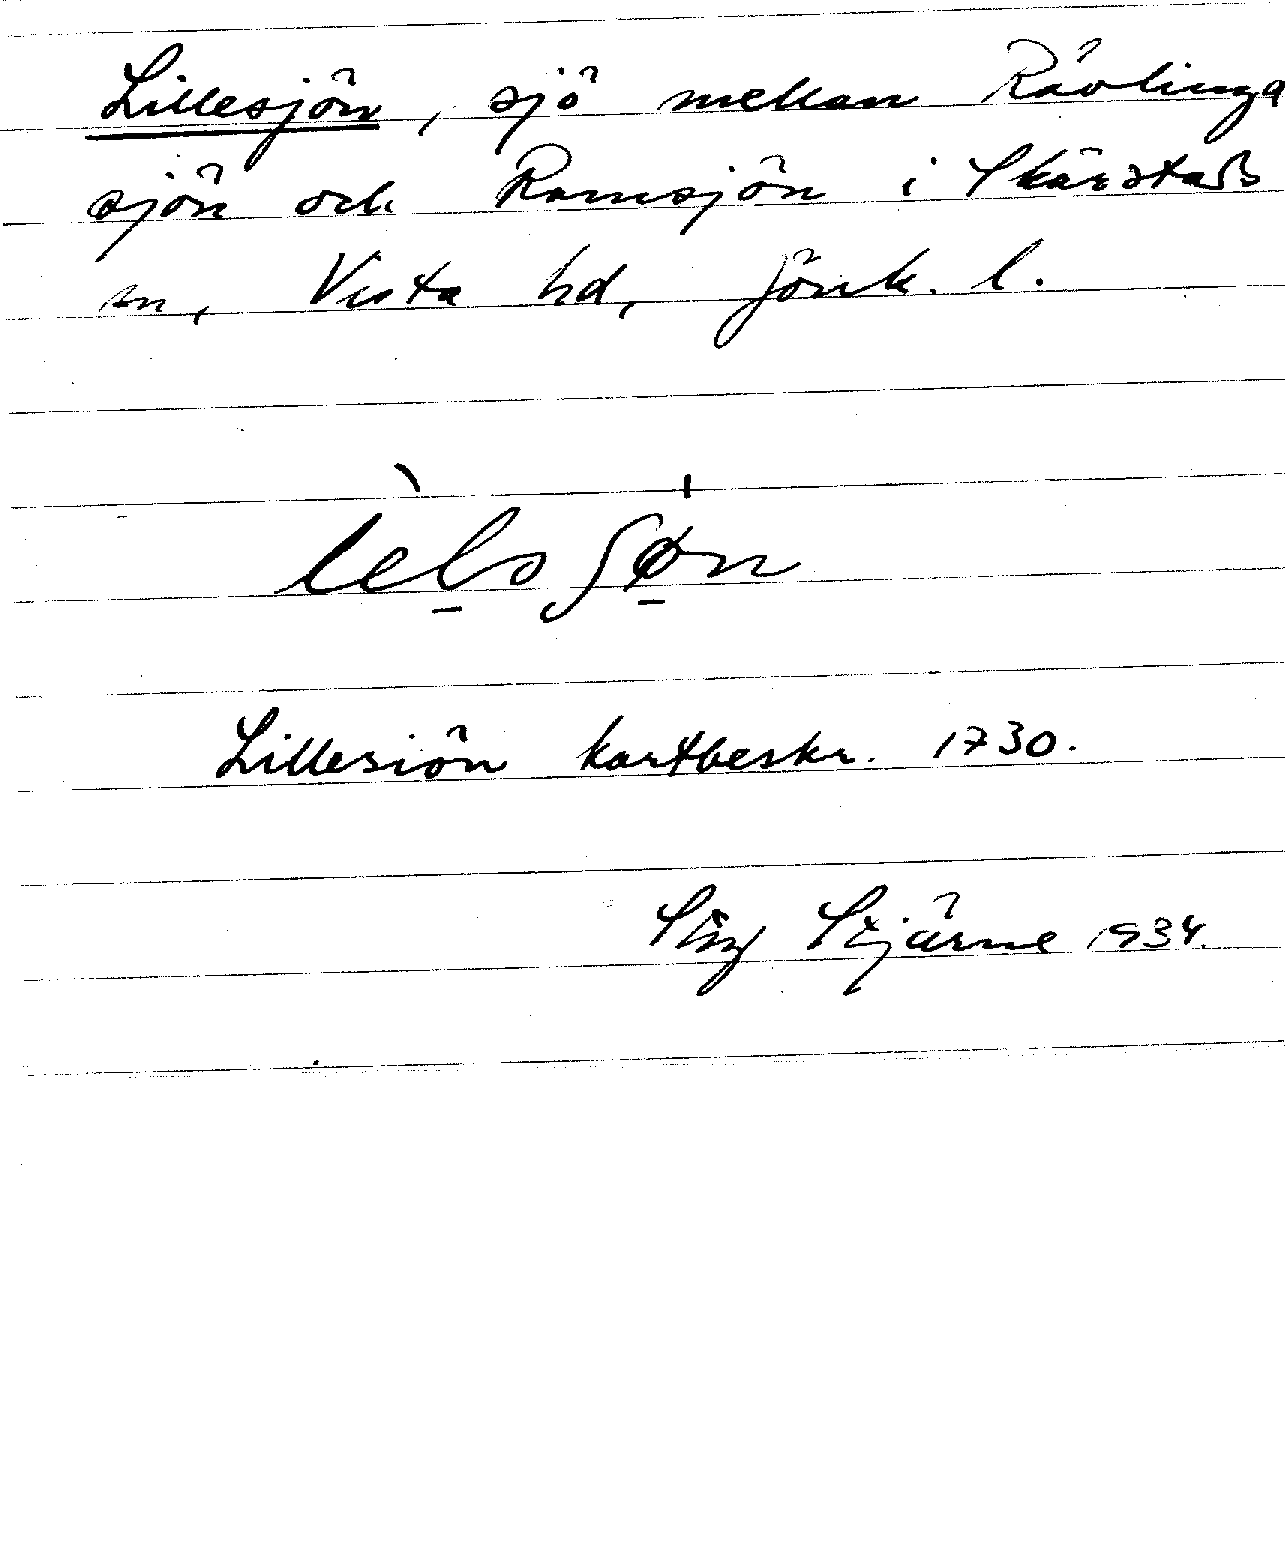 Lillesjön, sjö mellan Rävlinga
sjön och Ramsjön i Skärstads
sn, Vista hd, Jönk. l.
Lillesiön kartbeskr. 1730.
Stig Stjärne 1934.